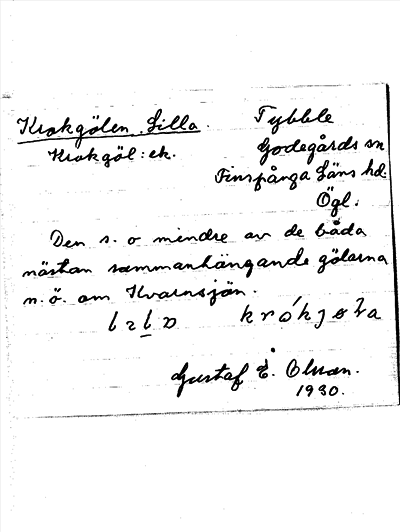 Krokgölen, Lilla. Tybble
Krokgöl: ek. Godegårds sn
Finspånga Läns hd.
Ögl.
Den s. o mindre av de båda
nästan sammanhängande gölarna
n. ö. om Kvarnsjön.
Gustaf E. Olsson.
1930.